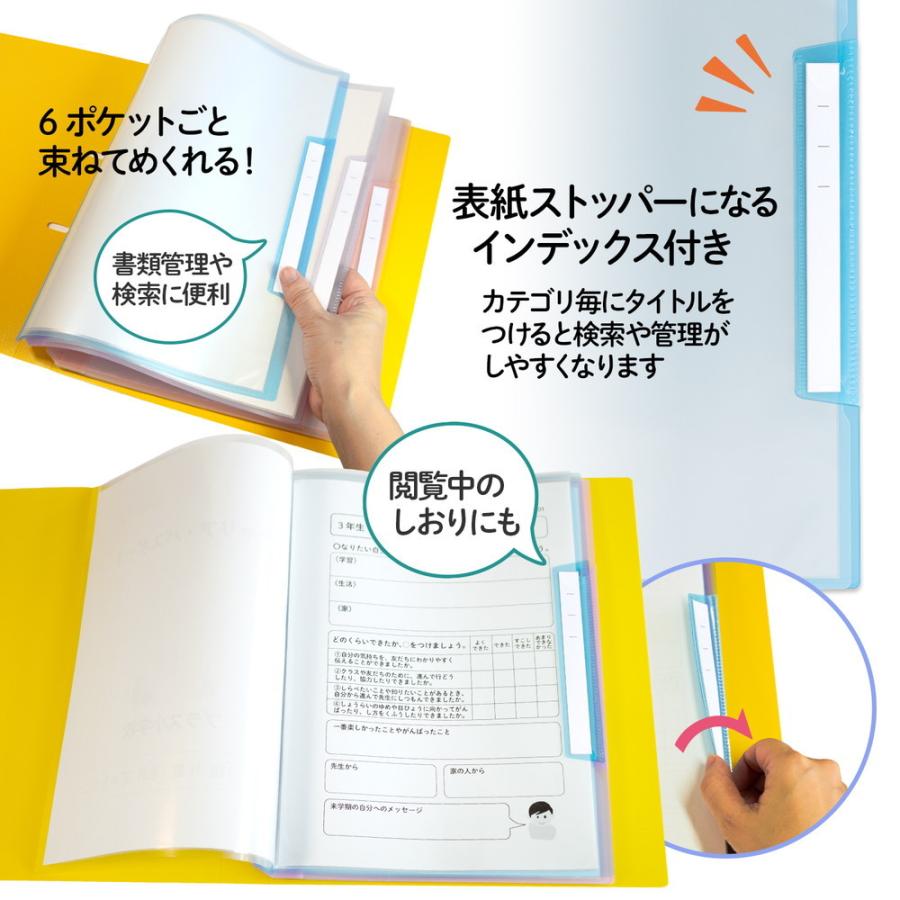 6ポケットごと
束ねてめくれる!
書類管理や
検索に便利
表紙ストッパーになる
インデックス付き
カテゴリ毎にタイトルを
つけると検索や管理が
しやすくなります
閲覧中の
しおりにも
3年生
○なりたい自
(学習)
(生活)
(家)
どのくらいできたか、○をつけましょう。
よくできた
できた
すこしできた
あまりできなかった
①自分の気持ちを、友だちにわかりやすく
伝えることができましたか。
②クラスや友だちのために、進んで行どう
したり、協力したりできましたか。
③しらべたいことや知りたいことがあるとき、
自分から進んで先生にしつもんできましたか。
④しょうらいのゆめや目ひょうに向かってがん
ばったり、し方をくふうしたりできましたか。
一番楽しかったことやがんばったこと
先生から
家の人から
来学期の自分へのメッセージ